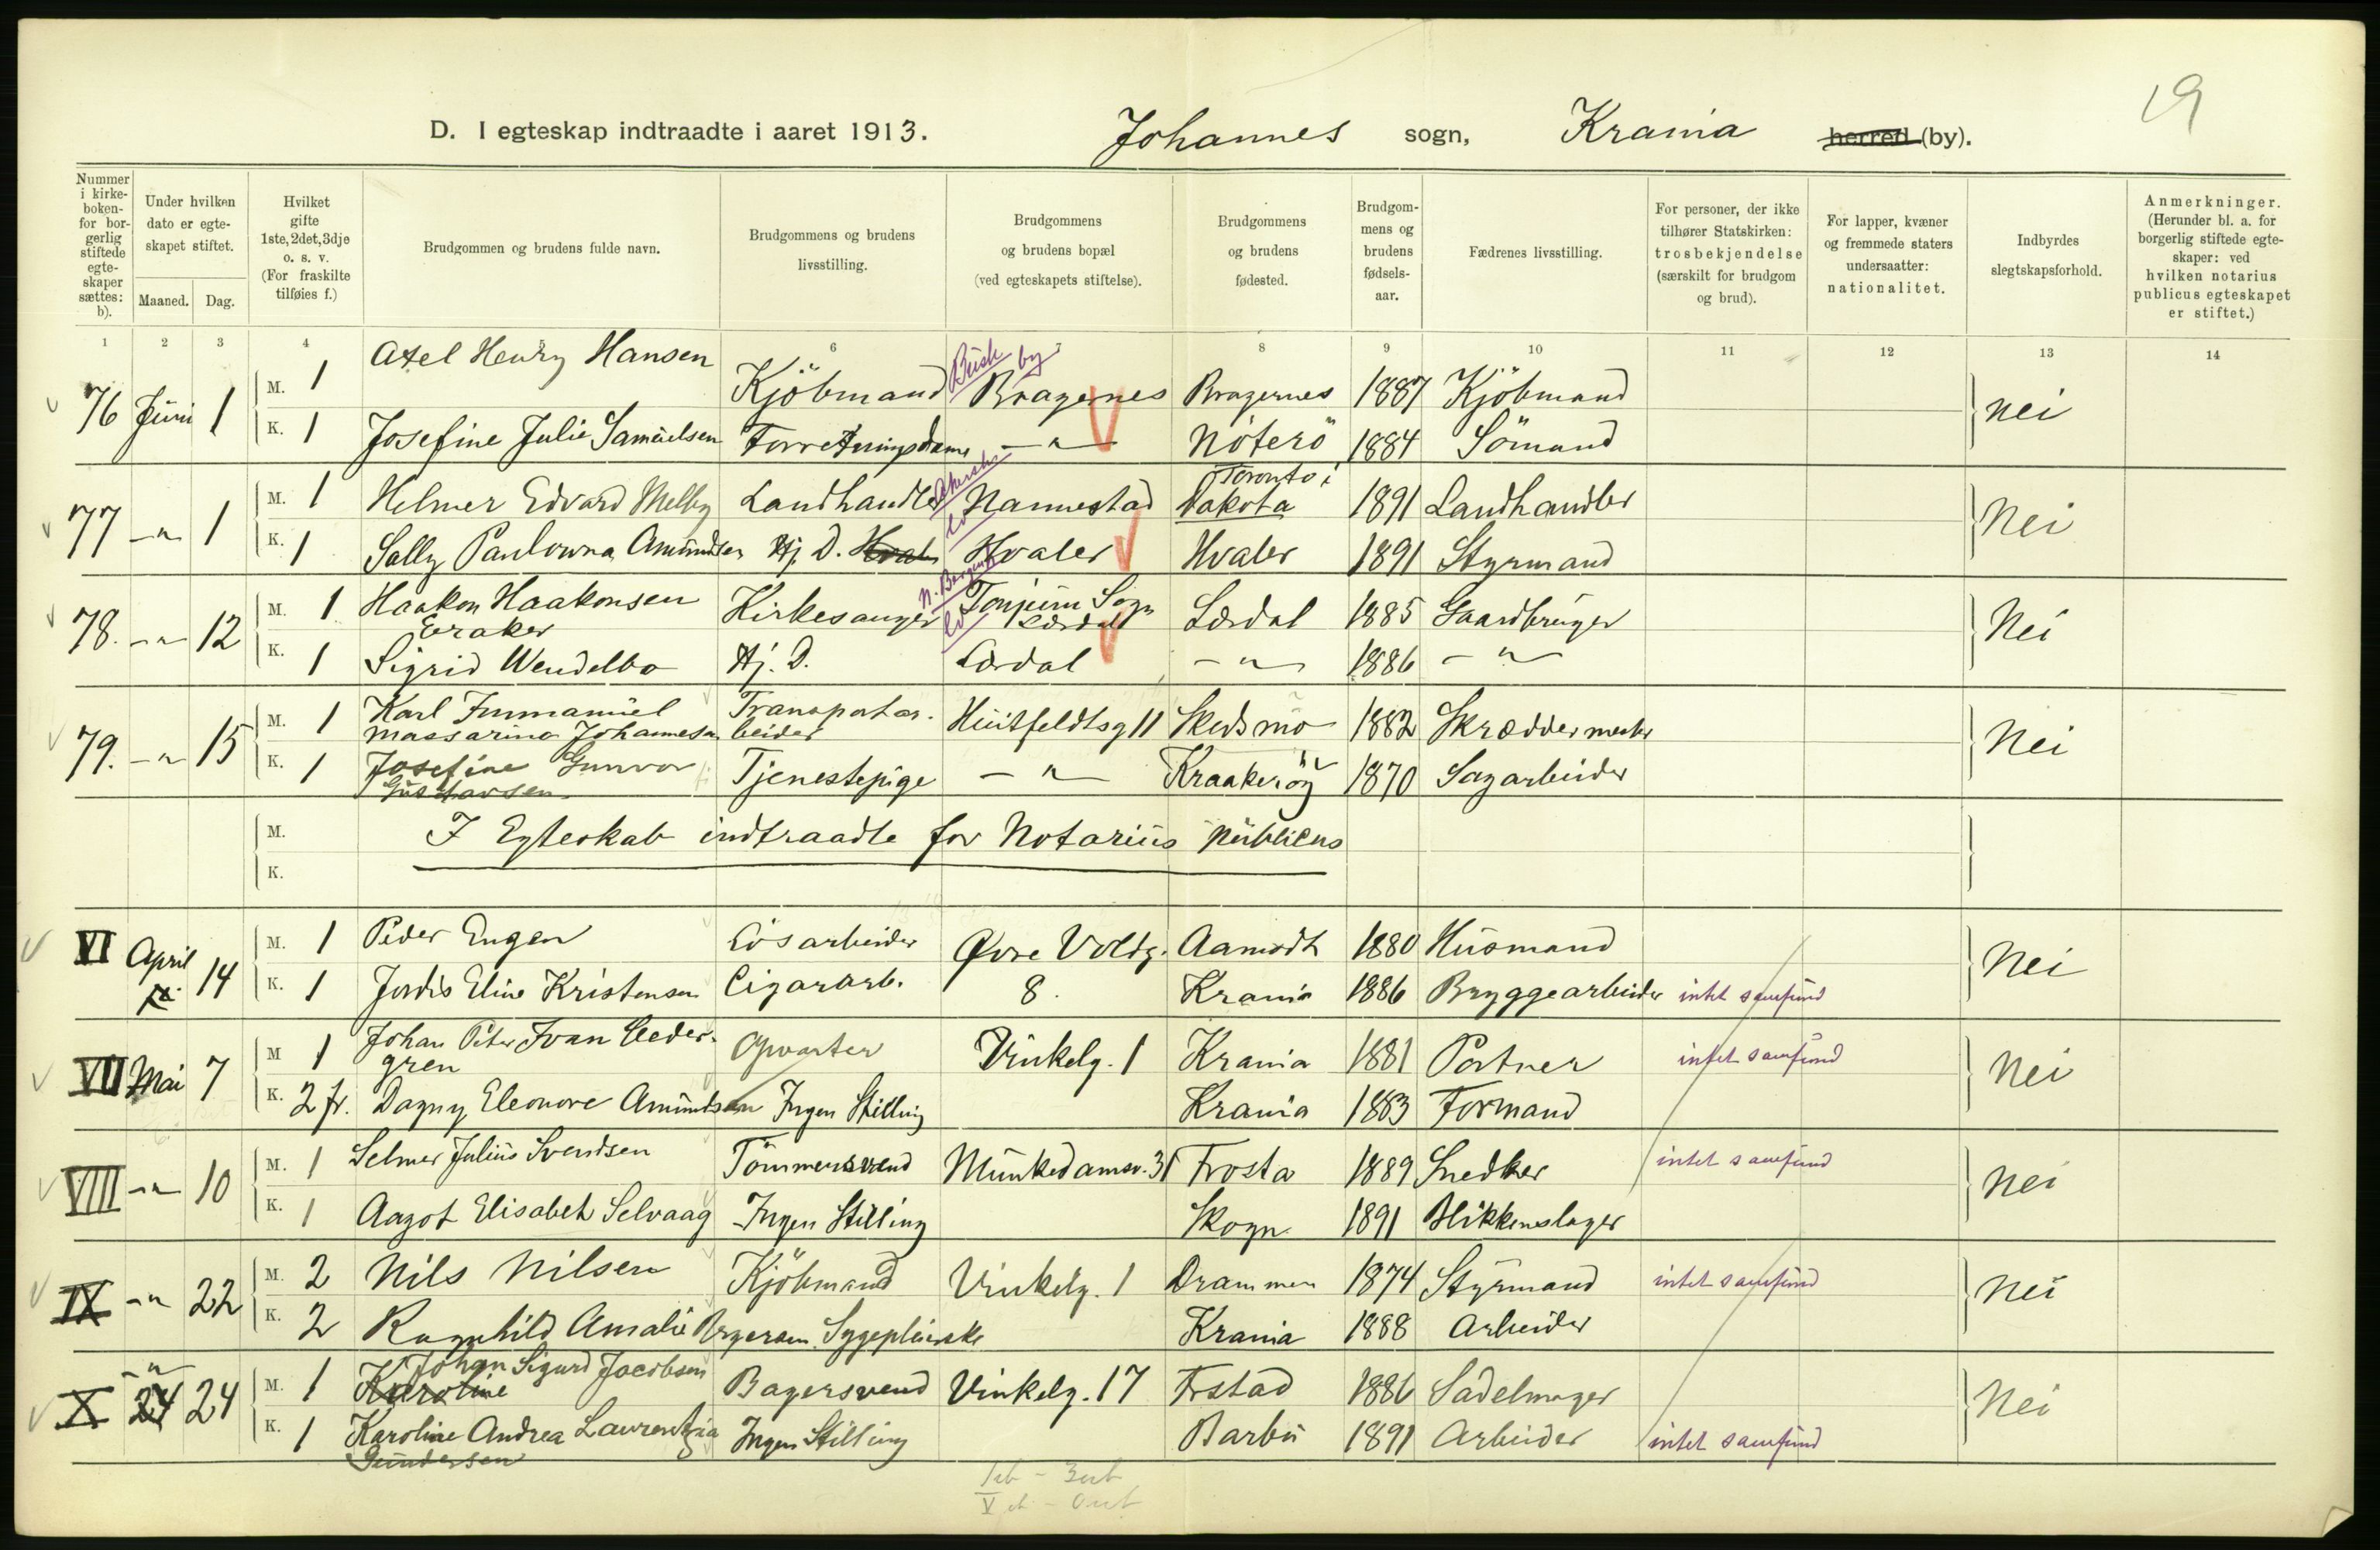 19
D. I egteskap indtraadte i aaret 1913. Johannes sogn, Krania herred (by).
Nummer i kirkeboken for borgerlig stiftede egteskaper sættes: b).
Under hvilken dato er egteskapet stiftet.
Maaned. Dag.
Hvilket gifte 1ste, 2det, 3dje o. s. v. (For fraskilte tilføies f.)
Brudgommen og brudens fulde navn.
Brudgommens og brudens livsstilling.
Brudgommens og brudens bopæl (ved egteskapets stiftelse).
Brudgommens og brudens fødested.
Brudgommens og brudens fødselsaar.
Fædrenes livsstilling.
For personer, der ikke tilhører Statskirken: trosbekjendelse (særskilt for brudgom og brud).
For lapper, kvæner og fremmede staters undersaatter: nationalitet.
Indbyrdes slegtskapsforhold.
Anmerkninger. (Herunder bl. a. for borgerlig stiftede egteskaper: ved hvilken notarius publicus egteskapet er stiftet.)
1 2 3 4 6 7 8 9 10 11 12 13 14
76 Juni 1 M. 1 Axel Henry Hansen Kjöbmand Busk by Bragernes Bragernes 1887 Kjöbmand nei
K. 1 Josefine Julie Samuelsen Forretningsdame —"— Nöterö 1884 Sömand
77 —"— 1 M. 1 Helmer Edvard Melby Landhandler Akersh. ld Nannestad Toronto i Dakota 1891 Landhandler Nei
K. 1 Sally Paulowna Amundsen Hj. D. Hvaler Hvaler Hvaler 1891 Styrmand
78. —"— 12 M. 1 Haakon Haakonsen Eraker Kirkesanger N. Bergenh. ld Tonjum Sogn Lærdal Lærdal 1885 Gaardbruger Nei
K. 1 Sigrid Wendelbo Hj. D. Lærdal —"— 1886 —"—
79. —"— 15 M. 1 Karl Immanuel Massarino Johannesen Transportarbeider Huitfeldtsg 11 Skedsmo 1882 Skræddermester Nei
K. 1 Josefine Gunvor Gustavsen Tjenestepige —"— Kraakeröy 1870 Sagarbeider
M.
K.
I Egteskab indtraadte for Notarius publicus
VI April 14 M. 1 Peder Engen Lösarbeider Øvre Voldg. Aamodt 1880 Husmand Nei
K. 1 Jordis Eline Kristensen Cigararb. 8. Krania 1886 Bryggearbeider intet samfund
VII Mai 7 M 1 Johan Peter Ivan Cedergren Opvarter Vinkelg. 1 Krania 1881 Portner intet samfund Nei
K. 2 fr. Dagny Eleonore Amundsen Ingen Stilling Krania 1883 Formand
VIII —"— 10 M. 1 Selmer Julius Svendsen Tömmersvend Munkedamsv. 31 Frosta 1889 Snedker intet samfund Nei
K. 1 Aagot Elisabeth Selvaag Ingen Stilling Skogn 1891 Blikkenslager
IX —"— 22 M. 2 Nils Nilsen Kjöbmand Vinkelg. 1 Drammen 1874 Styrmand intet samfund Nei
K. 2 Ragnhild Amalie Sygepleierske Krania 1888 Arbeider
X —"— 24 24 M. 1 Johan Sigurd Jacobsen Karoline Bagersvend Vinkelg. 17 Frstad 1886 Sadelmager Nei
K. 1 Karoline Andrea Laurentzia Gundersen Ingen Stilling Barbu 1891 Arbeider intet samfund